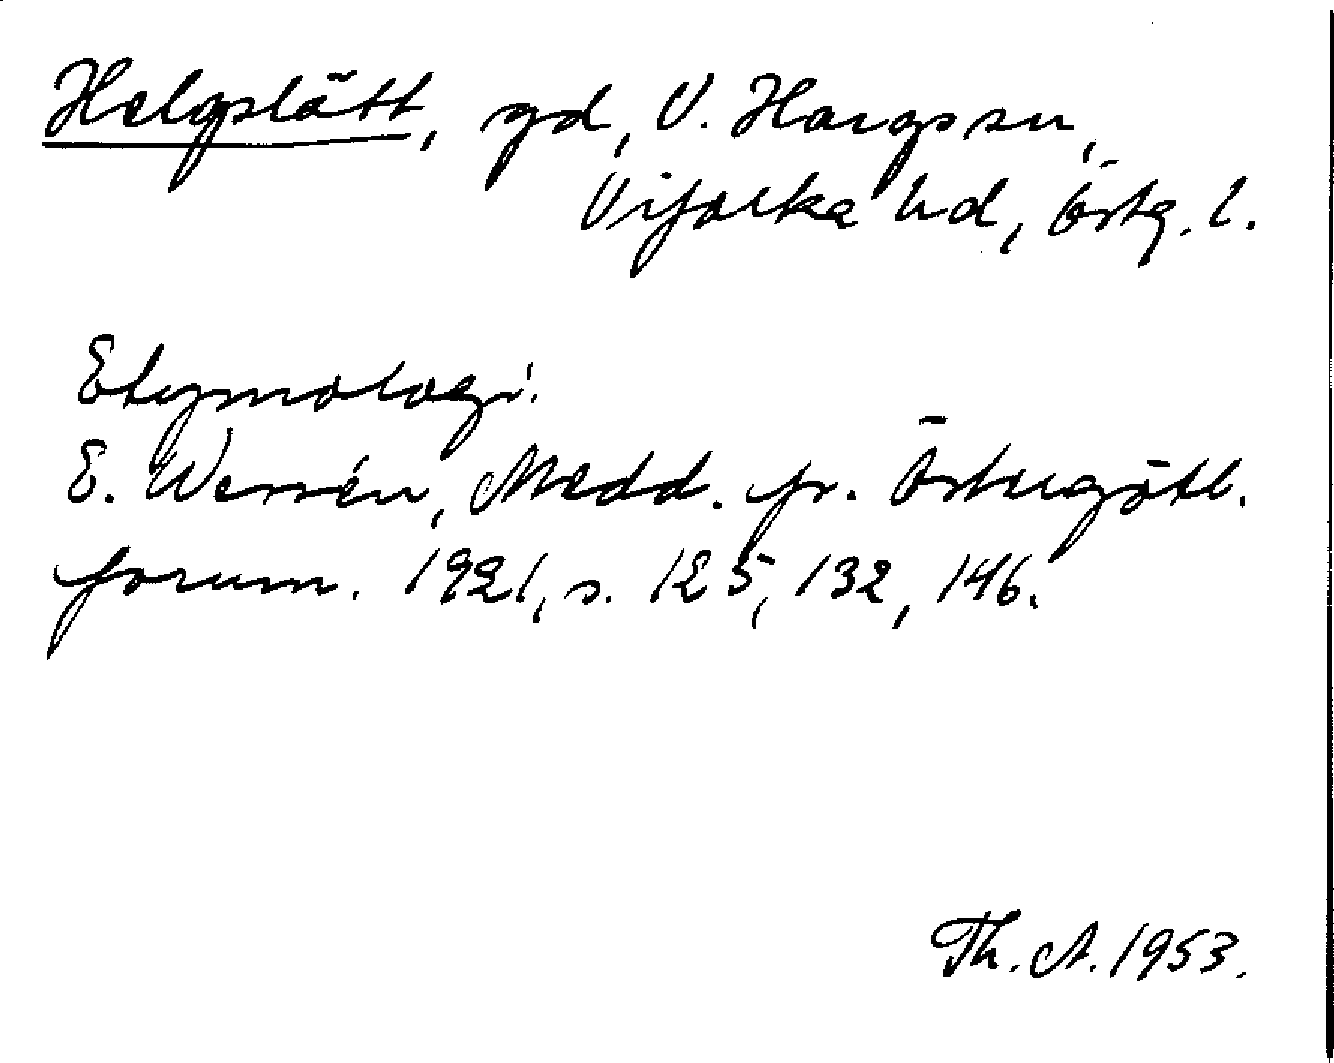 Helgslätt, gd, V. Hargs sn,
Vifolka hd, Östg. l.
Etymologi.
E. Wessén, Medd. fr. Östergötl.
fornm. 1921, s. 125, 132, 146.
Th. A. 1953.